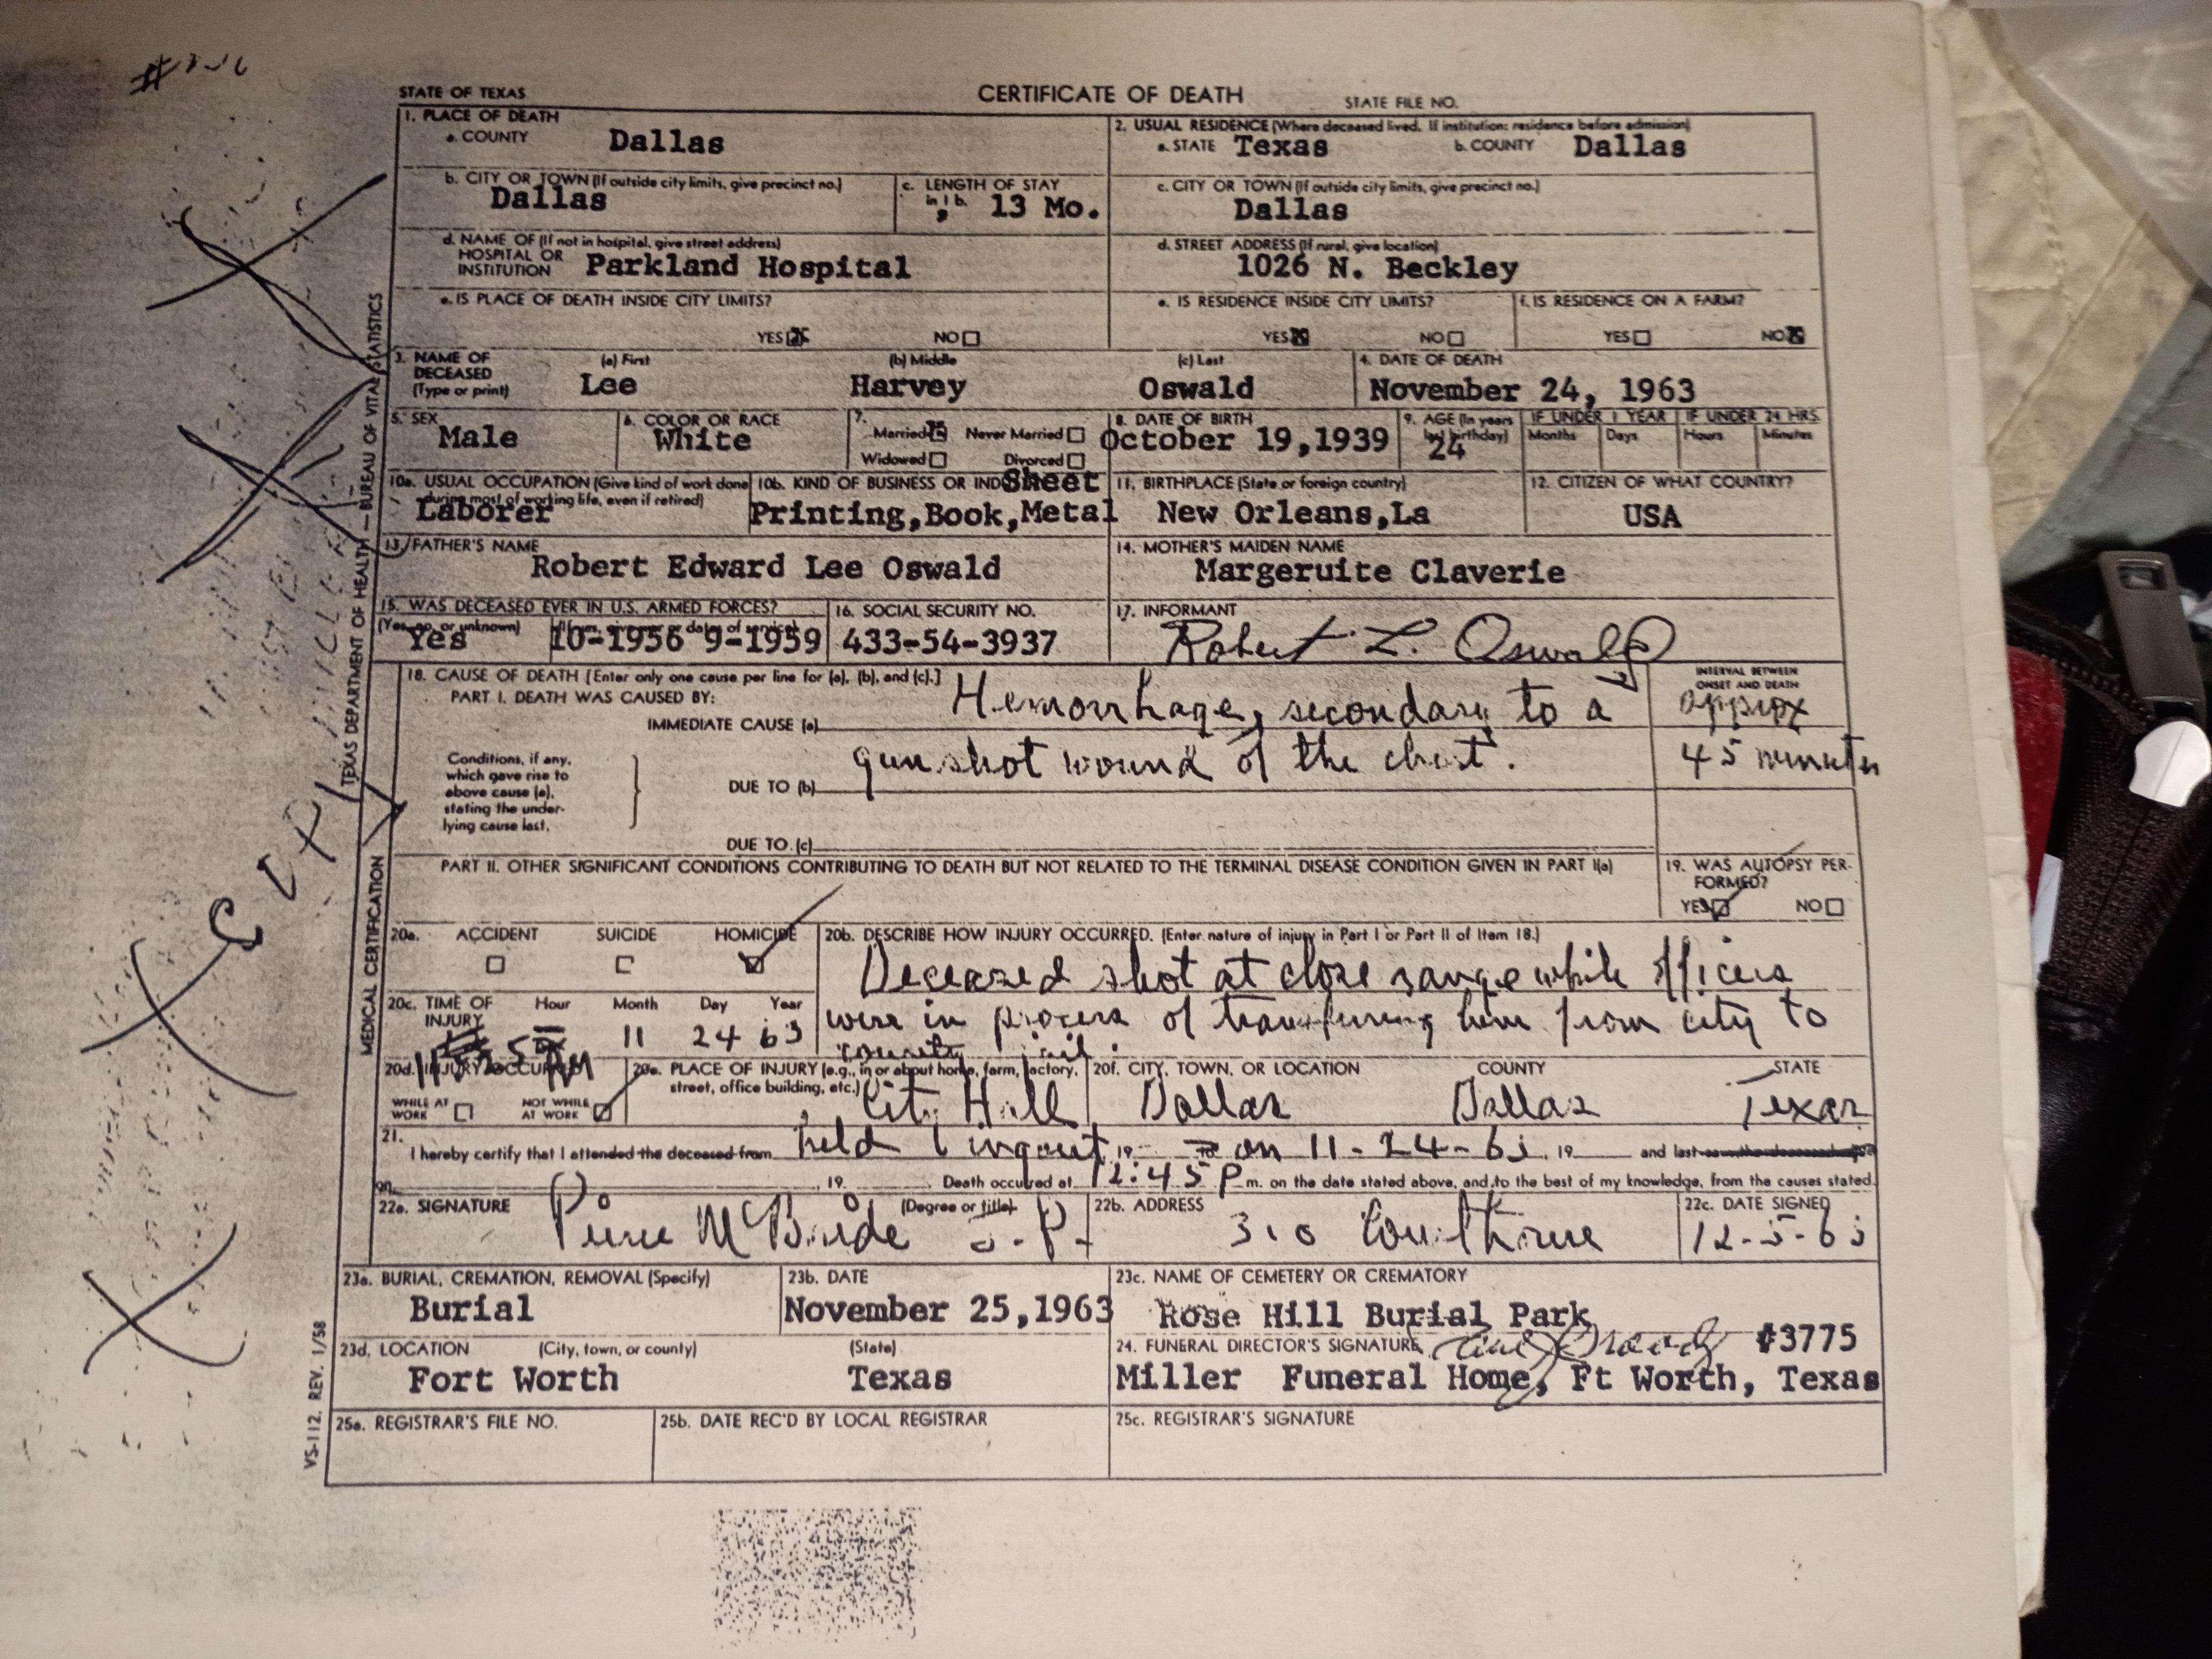 STATE OF TEXAS
CERTIFICATE OF DEATH
STATE FILE NO.
1. PLACE OF DEATH
a. COUNTY Dallas
2. USUAL RESIDENCE (Where deceased lived. If institution: residence before admission)
a. STATE Texas b. COUNTY Dallas
b. CITY OR TOWN (If outside city limits, give precinct no.) Dallas
c. LENGTH OF STAY in 1 b. 13 Mo.
c. CITY OR TOWN (If outside city limits, give precinct no.) Dallas
d. NAME OF (If not in hospital, give street address) HOSPITAL OR INSTITUTION Parkland Hospital
d. STREET ADDRESS (If rural, give location) 1026 N. Beckley
e. IS PLACE OF DEATH INSIDE CITY LIMITS? YES NO
e. IS RESIDENCE INSIDE CITY LIMITS? YES NO
f. IS RESIDENCE ON A FARM? YES NO
3. NAME OF DECEASED (Type or print)
(a) First Lee
(b) Middle Harvey
(c) Last Oswald
4. DATE OF DEATH November 24, 1963
5. SEX Male
6. COLOR OR RACE White
7. Married Never Married
Widowed Divorced
8. DATE OF BIRTH October 19,1939
9. AGE (In years last birthday) 24
IF UNDER 1 YEAR Months Days
IF UNDER 24 HRS. Hours Minutes
10a. USUAL OCCUPATION (Give kind of work done during most of working life, even if retired) Laborer
10b. KIND OF BUSINESS OR IND Sheet
Printing,Book,Metal
11. BIRTHPLACE (State or foreign country) New Orleans,La
12. CITIZEN OF WHAT COUNTRY? USA
13. FATHER'S NAME Robert Edward Lee Oswald
14. MOTHER'S MAIDEN NAME Margeruite Claverie
15. WAS DECEASED EVER IN U.S. ARMED FORCES?
(Yes, no, or unknown) Yes 10-1956 9-1959
16. SOCIAL SECURITY NO. 433-54-3937
17. INFORMANT Robert L. Oswald
18. CAUSE OF DEATH [Enter only one cause per line for (a), (b), and (c).]
PART I. DEATH WAS CAUSED BY:
IMMEDIATE CAUSE (a) Hemorrhage, secondary to a
INTERVAL BETWEEN ONSET AND DEATH approx
45 minutes
Conditions, if any, which gave rise to above cause (a), stating the underlying cause last.
gunshot wound of the chest.
DUE TO (b)
DUE TO (c)
PART II. OTHER SIGNIFICANT CONDITIONS CONTRIBUTING TO DEATH BUT NOT RELATED TO THE TERMINAL DISEASE CONDITION GIVEN IN PART I(a)
19. WAS AUTOPSY PERFORMED?
YES NO
20a. ACCIDENT SUICIDE HOMICIDE
20b. DESCRIBE HOW INJURY OCCURRED. (Enter nature of injury in Part I or Part II of Item 18.)
Deceased shot at close range while officers
were in process of transfering him from city to
county jail.
20c. TIME OF INJURY Hour Month Day Year
11 24 63
20d. INJURY OCCURRED
WHILE AT WORK NOT WHILE AT WORK
20e. PLACE OF INJURY (e.g., in or about home, farm, factory, street, office building, etc.) City Hall
20f. CITY, TOWN, OR LOCATION Dallas
COUNTY Dallas
STATE Texas
21. I hereby certify that I attended the deceased from held inquest, 19 to on 11-24-63, 19 and last saw the deceased
on 19 Death occurred at 12:45 P m. on the date stated above, and to the best of my knowledge, from the causes stated.
22a. SIGNATURE (Degree or title) Pierce McBride J.P.
22b. ADDRESS 310 Courthouse
22c. DATE SIGNED 12-5-63
23a. BURIAL, CREMATION, REMOVAL (Specify) Burial
23b. DATE November 25,1963
23c. NAME OF CEMETERY OR CREMATORY Rose Hill Burial Park
23d. LOCATION (City, town, or county) (State)
Fort Worth Texas
24. FUNERAL DIRECTOR'S SIGNATURE #3775
Miller Funeral Home, Ft Worth, Texas
25a. REGISTRAR'S FILE NO.
25b. DATE REC'D BY LOCAL REGISTRAR
25c. REGISTRAR'S SIGNATURE
TEXAS DEPARTMENT OF HEALTH — BUREAU OF VITAL STATISTICS
MEDICAL CERTIFICATION
VS-112, REV. 1/58